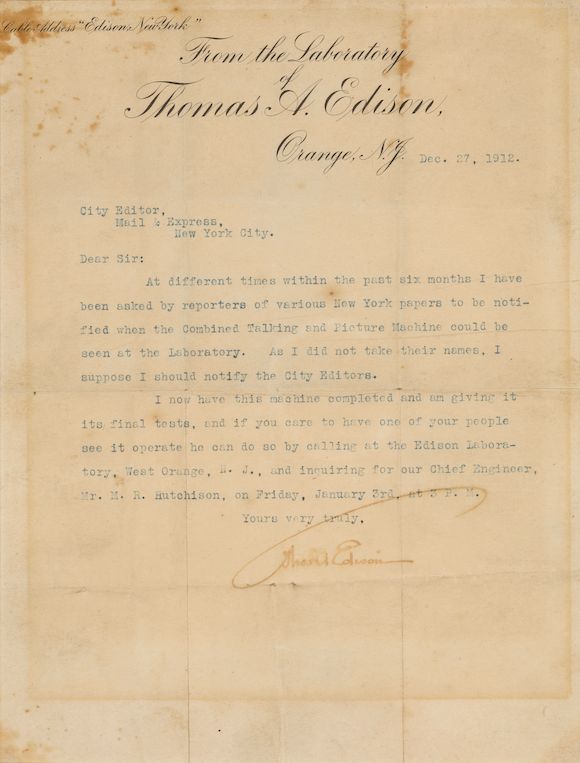 Cable Address "Edison, New York"
From the Laboratory
of
Thomas A. Edison,
Orange, N.J.
Dec. 27, 1912.
City Editor,
Mail & Express,
New York City.
Dear Sir:
At different times within the past six months I have
been asked by reporters of various New York papers to be noti-
fied when the Combined Talking and Picture Machine could be
seen at the Laboratory. As I did not take their names, I
suppose I should notify the City Editors.
I now have this machine completed and am giving it
its final tests, and if you care to have one of your people
see it operate he can do so by calling at the Edison Labora-
tory, West Orange, N. J., and inquiring for our Chief Engineer,
Mr. M. R. Hutchison, on Friday, January 3rd, at 3 P. M.
Yours very truly,
Thomas A Edison